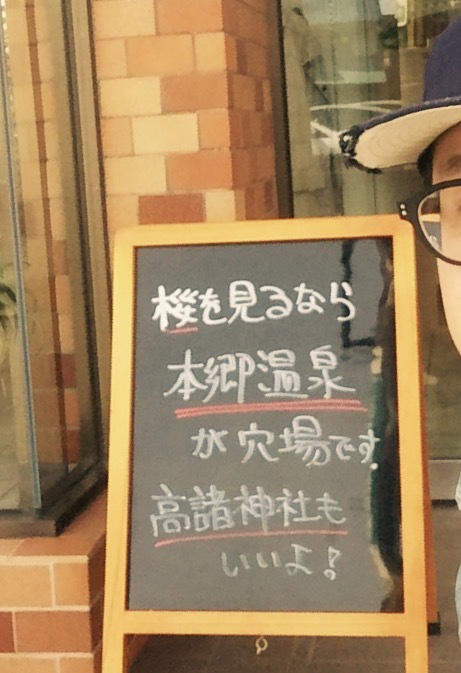 桜を見るなら
本郷温泉
が穴場です.
高諸神社も
いいよ!